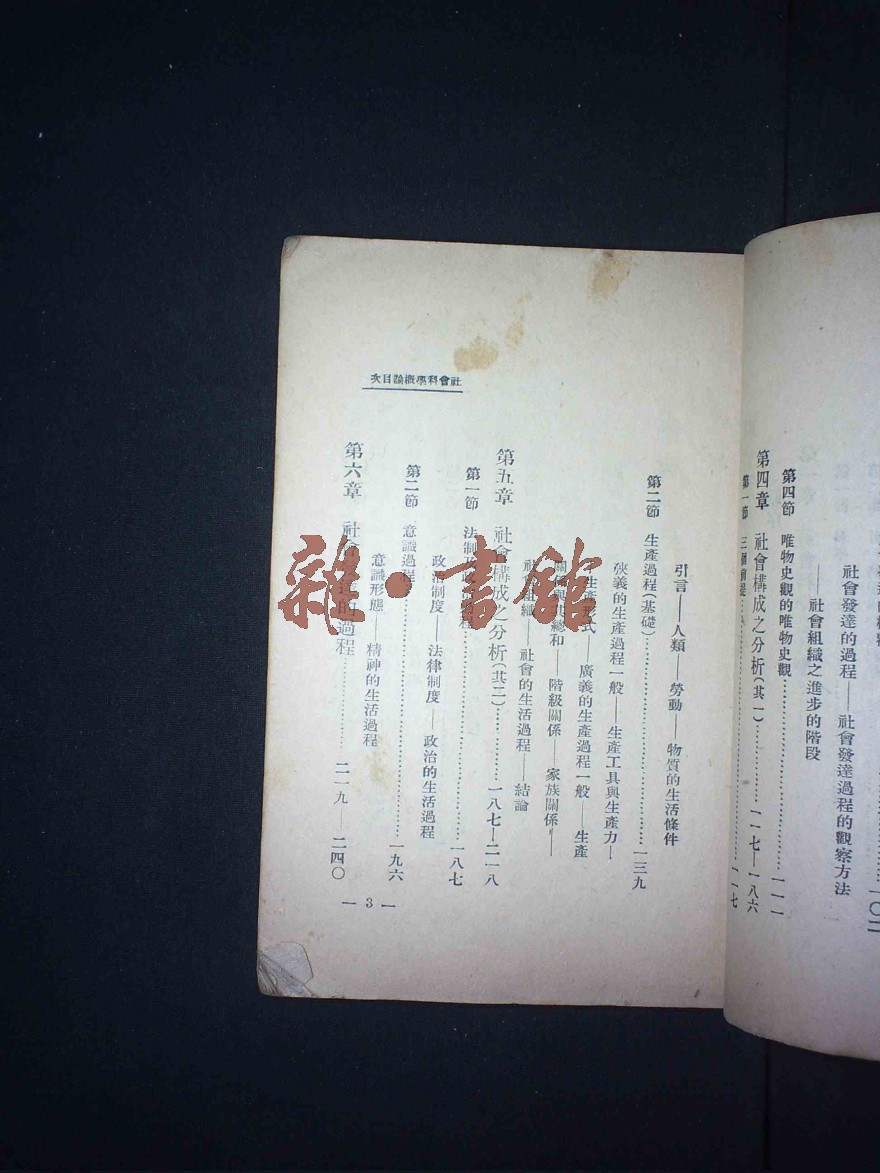 社會發達的過程——社會發達過程的觀察方法
——社會組織之進步的階段
第四節 唯物史觀的唯物史觀……一一一
第四章 社會構成之分析(其一)……一一七—一八六
第一節 三個前提……一一七
社會科學概論目次
引言——人類——勞動——物質的生活條件
第二節 生產過程(基礎)……一三九
狹義的生產過程一般——生產工具與生產力—
—生產形式——廣義的生產過程一般——生產
關係與其總和——階級關係——家族關係——
社會組織——社會的生活過程——結論
第五章 社會構成之分析(其二)……一八七—二一八
第一節 法制及政治過程……一八七
政治制度——法律制度——政治的生活過程
第二節 意識過程……一九六
意識形態——精神的生活過程
第六章 社會發達的過程……二一九—二四〇
— 3 —
雜·書館